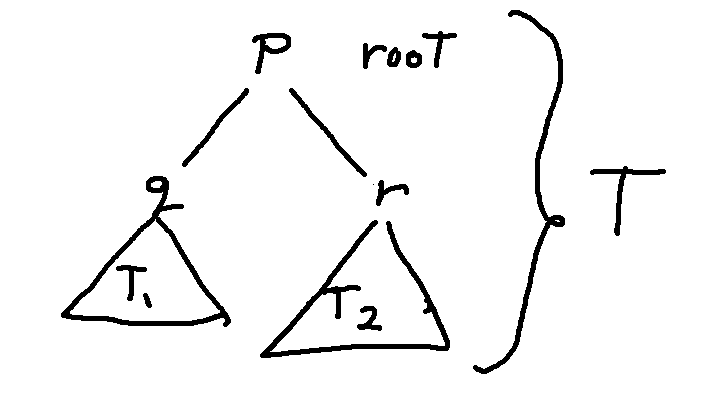 p root
T
q r
T1 T2